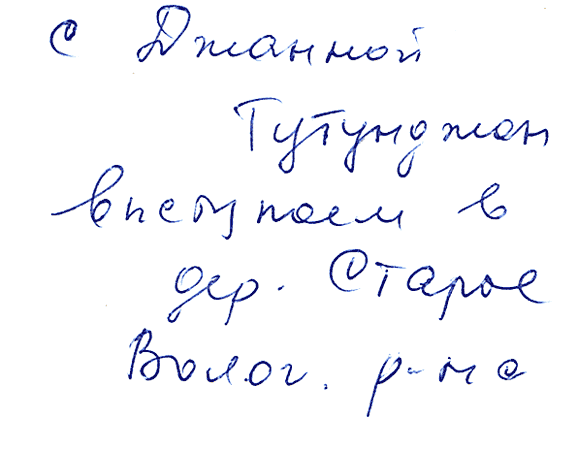 с Джанной
Тутунджан
выступаем в
дер. Старое
Волог. р-на